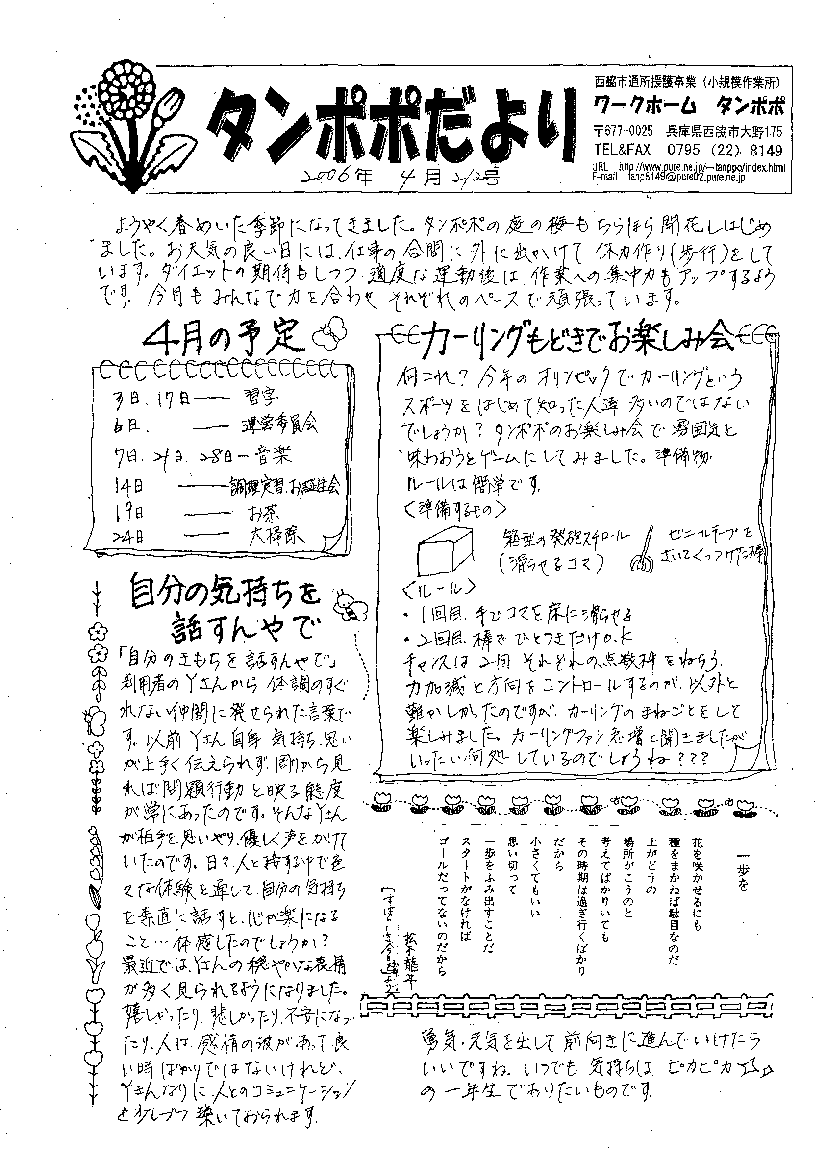 タンポポだより
2006年 4月 212号
西脇市通所援護事業(小規模作業所)
ワークホーム タンポポ
〒677-0025 兵庫県西脇市大野175
TEL&FAX 0795 (22) 8149
URL http://www.pure.ne.jp/~tanppo/index.html
E-mail tanp8149@pure02.pure.ne.jp
ようやく春めいた季節になってきました。タンポポの庭の梅もちらほら開花しはじめ
ました。お天気の良い日には、仕事の合間に外に出かけて 体力作り(歩行)をして
います。ダイエットの期待もしつつ、適度な運動後は、作業への集中力もアップするよう
です。今月もみんなで力を合わせ、それぞれのペースで頑張っています。
4月の予定
3日、17日── 習字
6日、 ── 運営委員会
7日、21日、28日─音楽
14日 ──調理実習、お誕生会
19日 ── お茶
24日 ── 大掃除
自分の気持ちを
話すんやで
「自分のきもちを話すんやで」
利用者のYさんから 体調のすぐ
れない仲間に発せられた言葉で
す。以前Yさん自身 気持ち、思い
が上手く伝えられず、周りから見
れば問題行動と映る態度
が常にあったのです。そんなYさん
が相手を思いやり、優しく声をかけて
いたのです。日々、人と接する中で色
々な体験を通して、自分の気持ち
を素直に話すと、心が楽になる
こと…体感したのでしょうか?
最近では、Yさんの穏やかな表情
が多く見られるようになりました。
嬉しかったり、悲しかったり、不安になっ
たり、人は、感情の波があって良
い時ばかりではないけれど、
Yさんなりに、人とのコミュニケーション
を少しづつ築いておられます。
カーリングもどきでお楽しみ会
何これ?今年のオリンピックでカーリングという
スポーツをはじめて知った人達 多いのではない
でしょうか?タンポポのお楽しみ会で雰囲気を
味わおうとゲームにしてみました。準備物、
ルールは簡単です。
<準備するもの>
箱型の発砲スチロール
(滑らせるコマ)
ビニールテープを
さいてくっつけた棒
<ルール>
・1回目、手でコマを床に滑らせる
・2回目、棒でひとつきだけO.K
チャンスは2回 それぞれの点数枠をねらう
力加減と方向をコントロールするのが、以外と
難かしかったのですが、カーリングのまねごとをして
楽しみました。カーリングファン急増と聞きましたが
いったい何処でしているのでしょうね???
一歩を
花を咲かせるにも
種をまかねば駄目なのだ
土がどうの
場所がこうのと
考えてばかりいても
その時期は過ぎ行くばかり
だから
小さくてもいい
思い切って
一歩をふみ出すことだ
スタートがなければ
ゴールだってないのだから
勇気・元気を出して 前向きに進んでいけたら
いいですね。いつでも 気持ちは ピカピカ☆☆
の一年生でありたいものです。